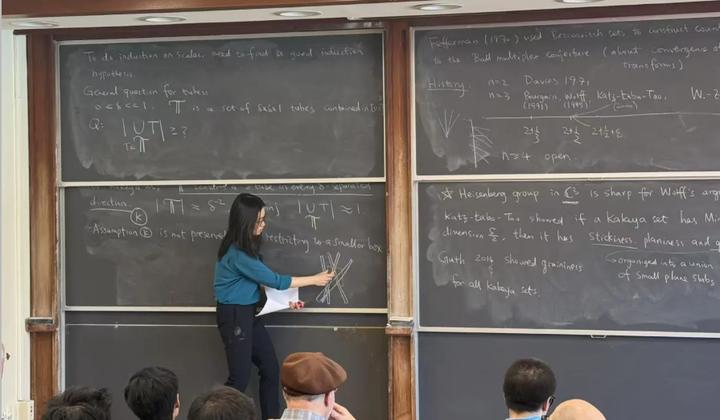 To do induction on scales, need to find a good induction
hypothesis.
General question for tubes:
0 < δ << 1, 𝕋 is a set of δxδx1 tubes contained in
Q: | ∪ T | ≥ ?
T∈𝕋
direction. (K) |𝕋| ≈ δ⁻² | ∪ T | ≈ 1
𝕋
- Assumption (K) is not preserve restricting to a smaller box
Fefferman (1970) used Besicovitch sets to construct
to the Ball multiplier conjecture (about convergence of
transforms)
History: n=2 Davies 1971
n=3 Bourgain, Wolff, Katz-Łaba-Tao, W.-
(1991) (1995) (2000)
2+1/3 2+1/2 2+1/2+ε
n≥4 open.
☆ Heisenberg group in ℂ³ is sharp for Wolff's
Katz-Łaba-Tao showed if a Kakeya set has
dimension 5/2, then it has stickiness, planiness and
Guth 2014 showed graininess
for all Kakeya sets.
organized into a union
of small plane slabs